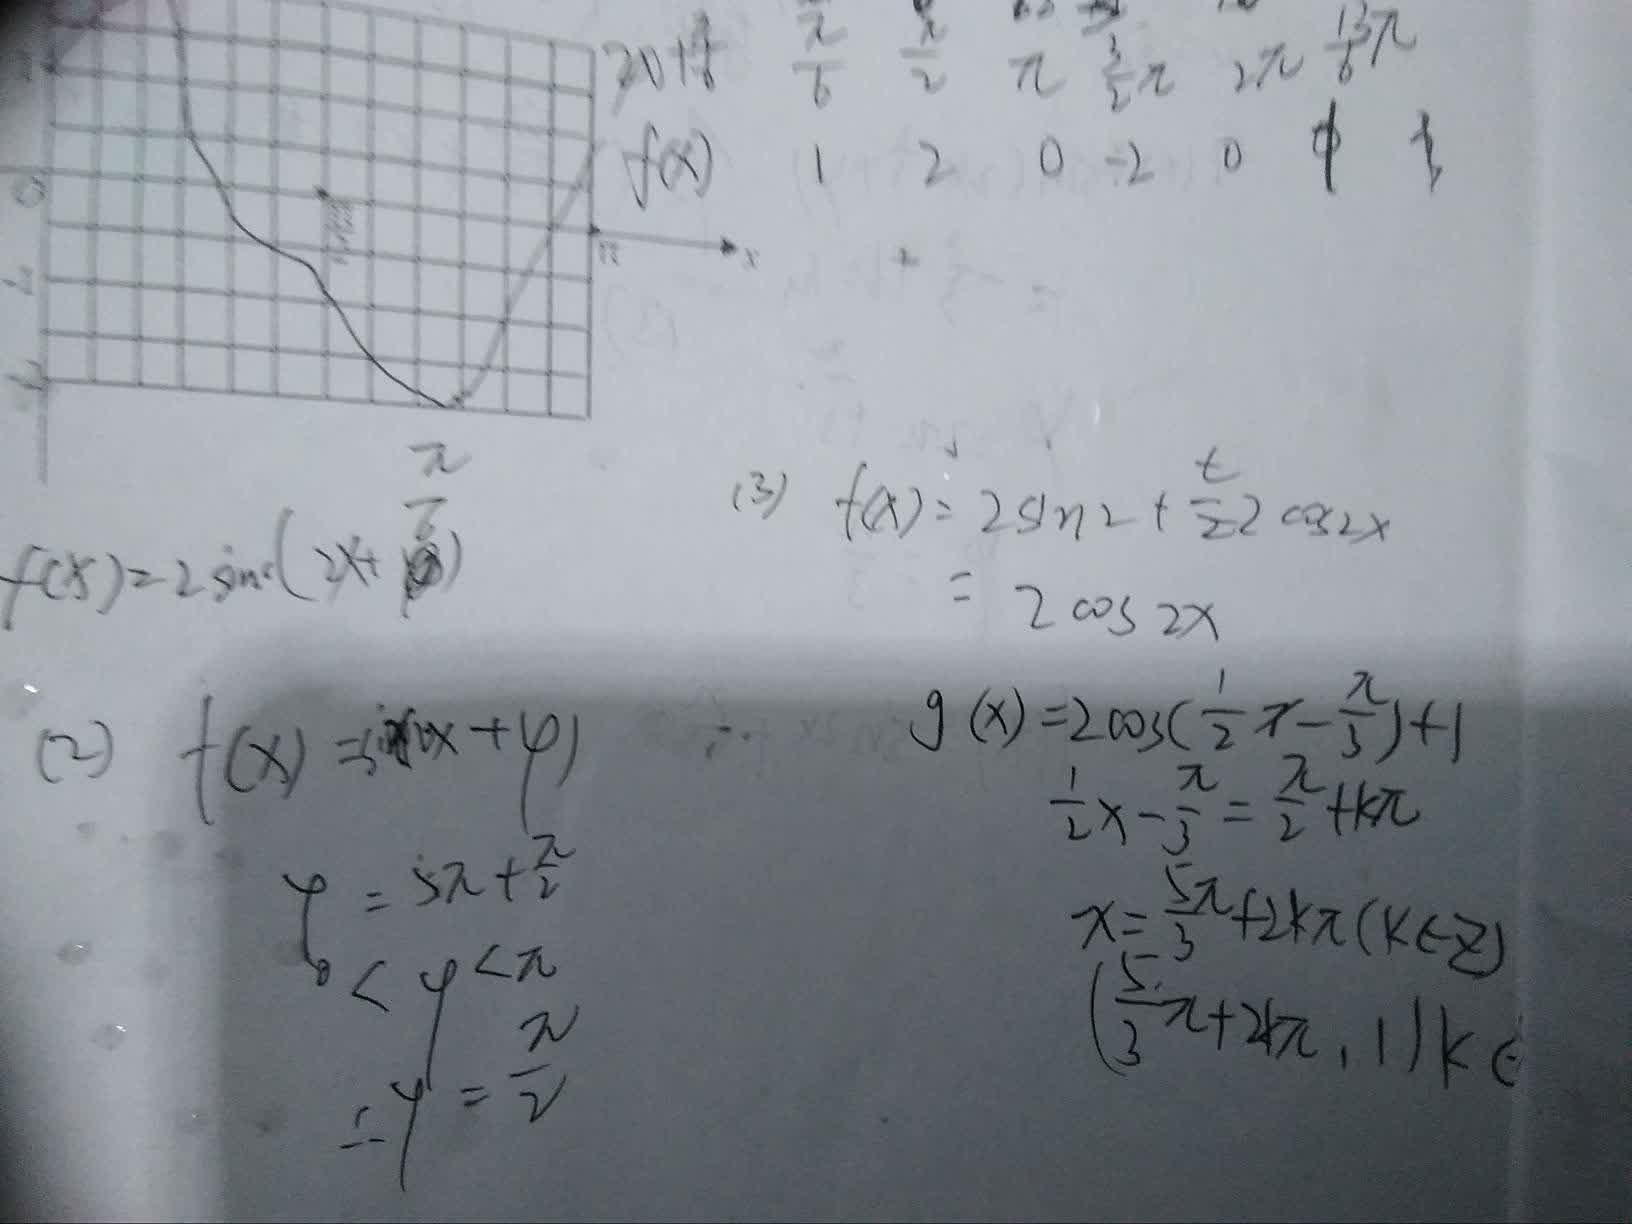 π/6 π/2 π 3/2π 2π 13/6π
f(x) 1 2 0 -2 0
0
π x
f(x)=2sin(2x+π/6)
(2) f(x)=sin(2x+φ)
φ=5π+π/2
0<φ<π
∴φ=π/2
(3) f(x)=2sin2+π/2 2cos2x
=2cos2x
g(x)=2cos(1/2x-π/3)+1
1/2x-π/3=π/2+kπ
x=5π/3+2kπ(k∈Z)
(5/3π+2kπ,1)k∈